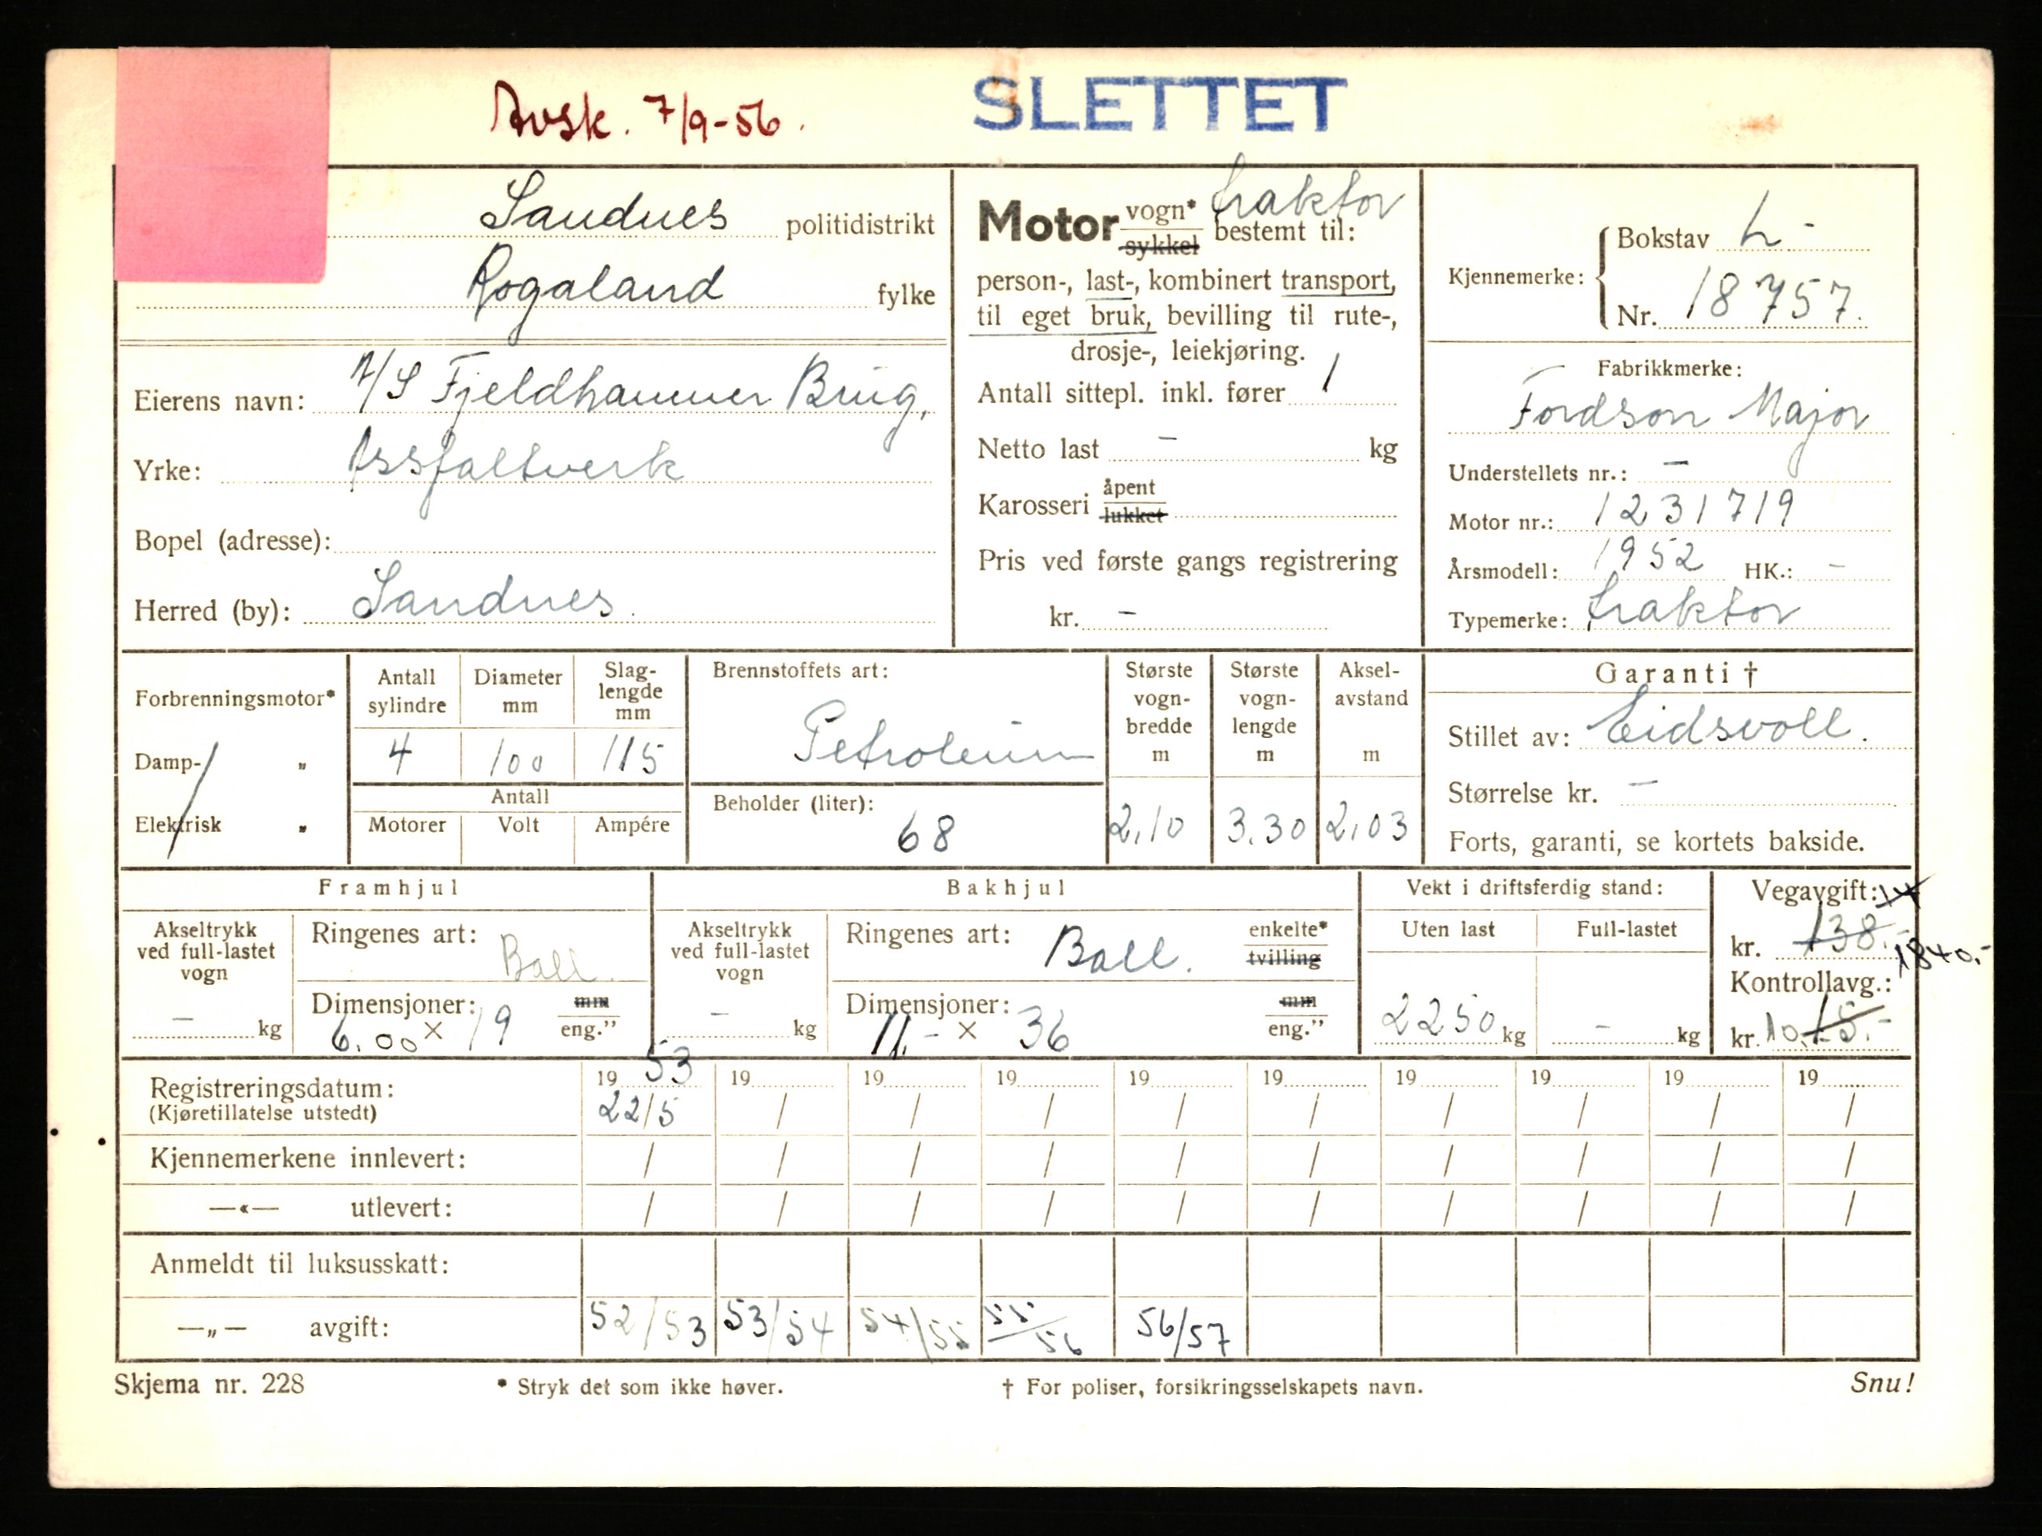 Avsk. 7/9-56.
SLETTET
Sandnes politidistrikt
Rogaland fylke
Eierens navn: A/S Fjeldhammer Brug,
Yrke: Assfaltverk
Bopel (adresse):
Herred (by): Sandnes.
Motor vogn* sykkel bestemt til: traktor
person-, last-, kombinert transport,
til eget bruk, bevilling til rute-,
drosje-, leiekjøring.
Antall sittepl. inkl. fører 1
Netto last - kg
Karosseri åpent lukket
Pris ved første gangs registrering
kr. -
Kjennemerke: Bokstav L-
Nr. 18757.
Fabrikkmerke:
Fordson Major
Understellets nr.: -
Motor nr.: 1231719
Årsmodell: 1952 HK.: -
Typemerke: traktor
Forbrenningsmotor*
Damp- „
Elektrisk „
Antall sylindre 4
Diameter mm 100
Slaglengde mm 115
Antall
Motorer Volt Ampére
Brennstoffets art:
Petroleum
Beholder (liter):
68
Største vognbredde m 2.10
Største vognlengde m 3.30
Akselavstand m 2.03
Garanti †
Stillet av: Eidsvoll.
Størrelse kr. -
Forts, garanti, se kortets bakside.
Framhjul
Akseltrykk ved full-lastet vogn - kg
Ringenes art: Ball
Dimensjoner: mm
6.00 × 19 eng.”
Bakhjul
Akseltrykk ved full-lastet vogn - kg
Ringenes art: Ball. enkelte* tvilling
Dimensjoner: mm
11.- × 36 eng.”
Vekt i driftsferdig stand:
Uten last Full-lastet
2250 kg - kg
Vegavgift:
kr. 138.- 1840.-
Kontrollavg.:
kr. 10.- 15.-
Registreringsdatum: 19 53 19 19 19 19 19 19 19 19 19
(Kjøretillatelse utstedt) 22/5 / / / / / / / / /
Kjennemerkene innlevert: / / / / / / / / / /
—«— utlevert: / / / / / / / / / /
Anmeldt til luksusskatt:
—„— avgift: 52/53 53/54 54/55 55/56 56/57
Skjema nr. 228
* Stryk det som ikke høver.
† For poliser, forsikringsselskapets navn.
Snu!